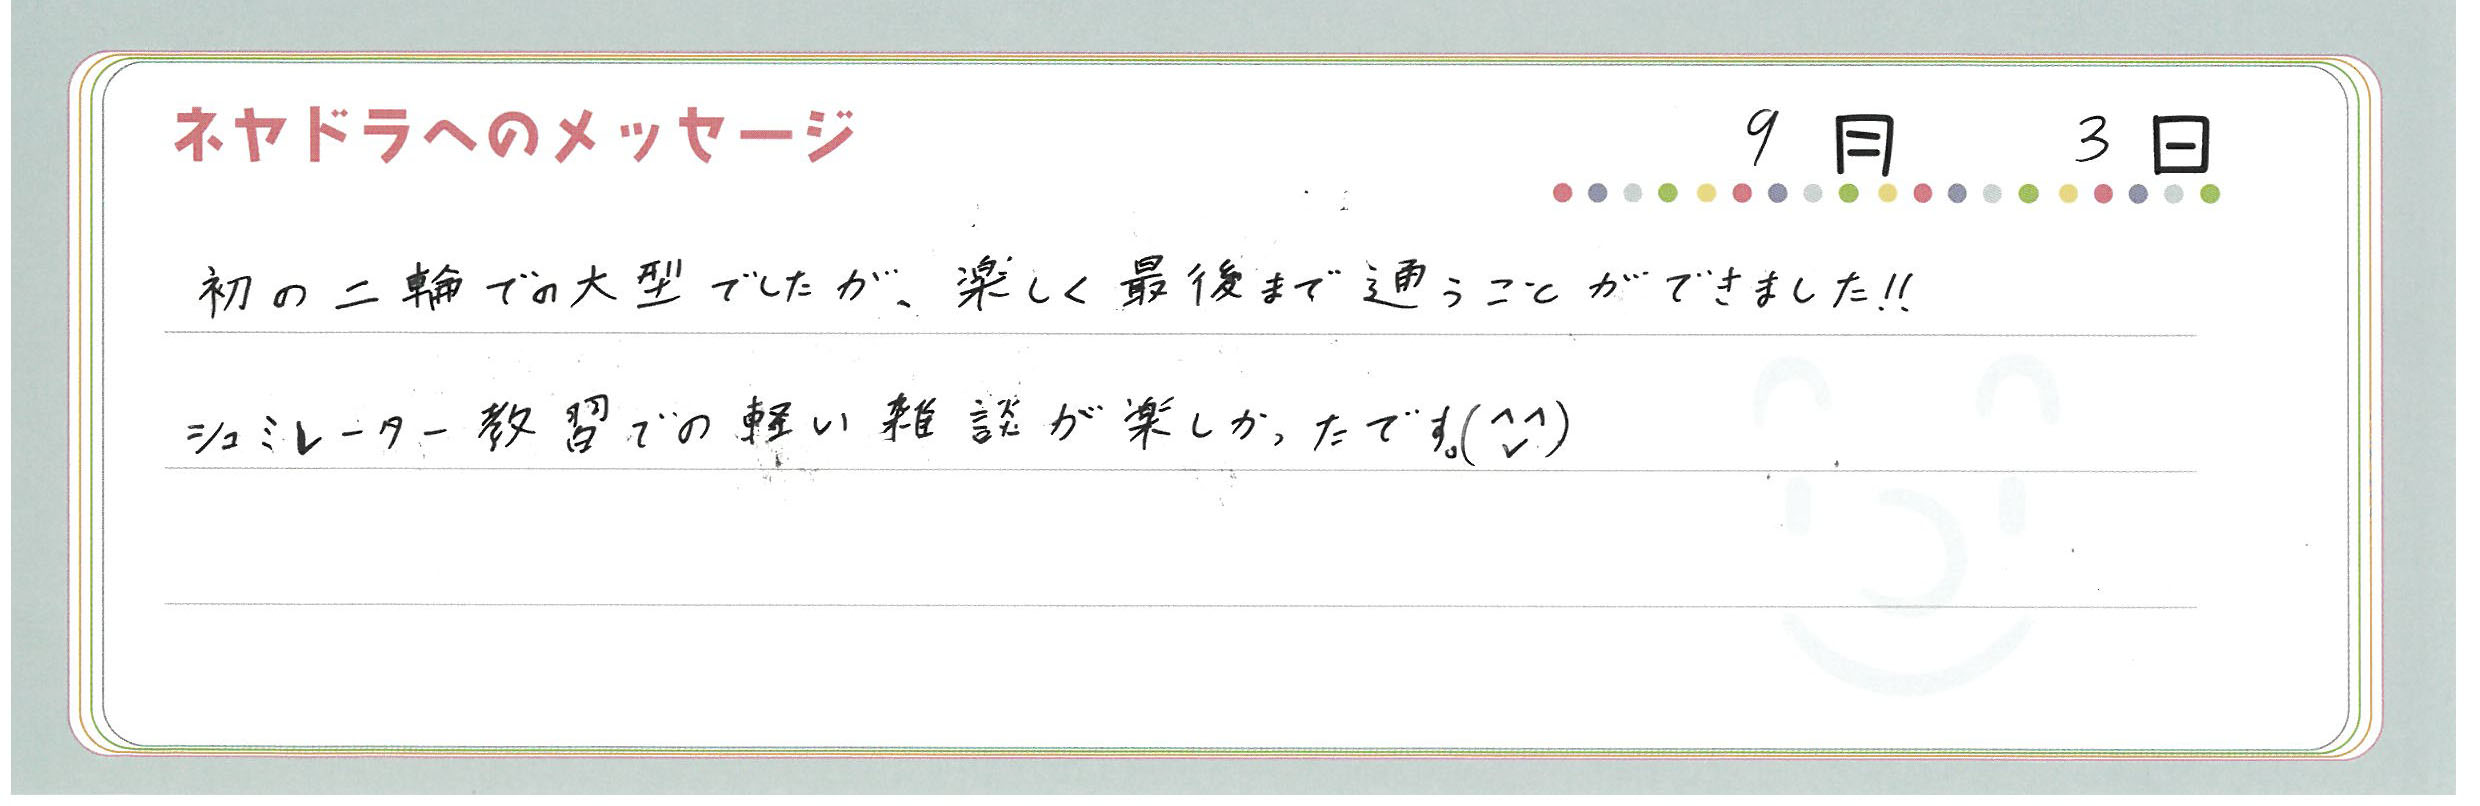 ネヤドラへのメッセージ
9月 3日
初の二輪での大型でしたが、楽しく最後まで通うことができました!!
シュミレーター教習での軽い雑談が楽しかったです。(^^)